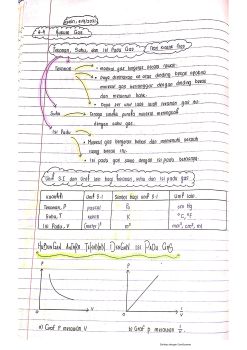 4.4 Hukum Gas
Tekanan, Suhu, dan Isi Padu Gas
Teori Kinetik Gas
Tekanan
Molekul gas bergerak secara rawak.
Daya dikenakan ke atas dinding bekas apabila
molekul gas berlanggar dengan dinding bekas
dan melantun balik.
Daya per unit luas ialah tekanan gas
Suhu
Tenaga kinetik purata molekul meningkat
dengan suhu gas.
Isi Padu
Molekul gas bergerak bebas dan memenuhi seluruh
ruang bekas itu.
Isi padu gas sama dengan isi padu bekasnya.
Unit S.I dan unit lain bagi tekanan, suhu dan isi padu gas
Kuantiti Unit S.I Simbol bagi unit S.I Unit lain
Tekanan, P pascal Pa cm Hg
Suhu, T kelvin K °C, °F
Isi Padu, V (meter)³ m³ mm³, cm³, ml
HUBUNGAN ANTARA TEKANAN DENGAN ISI PADU GAS
P P
V
a) Graf P melawan V b) Graf P melawan 1/V